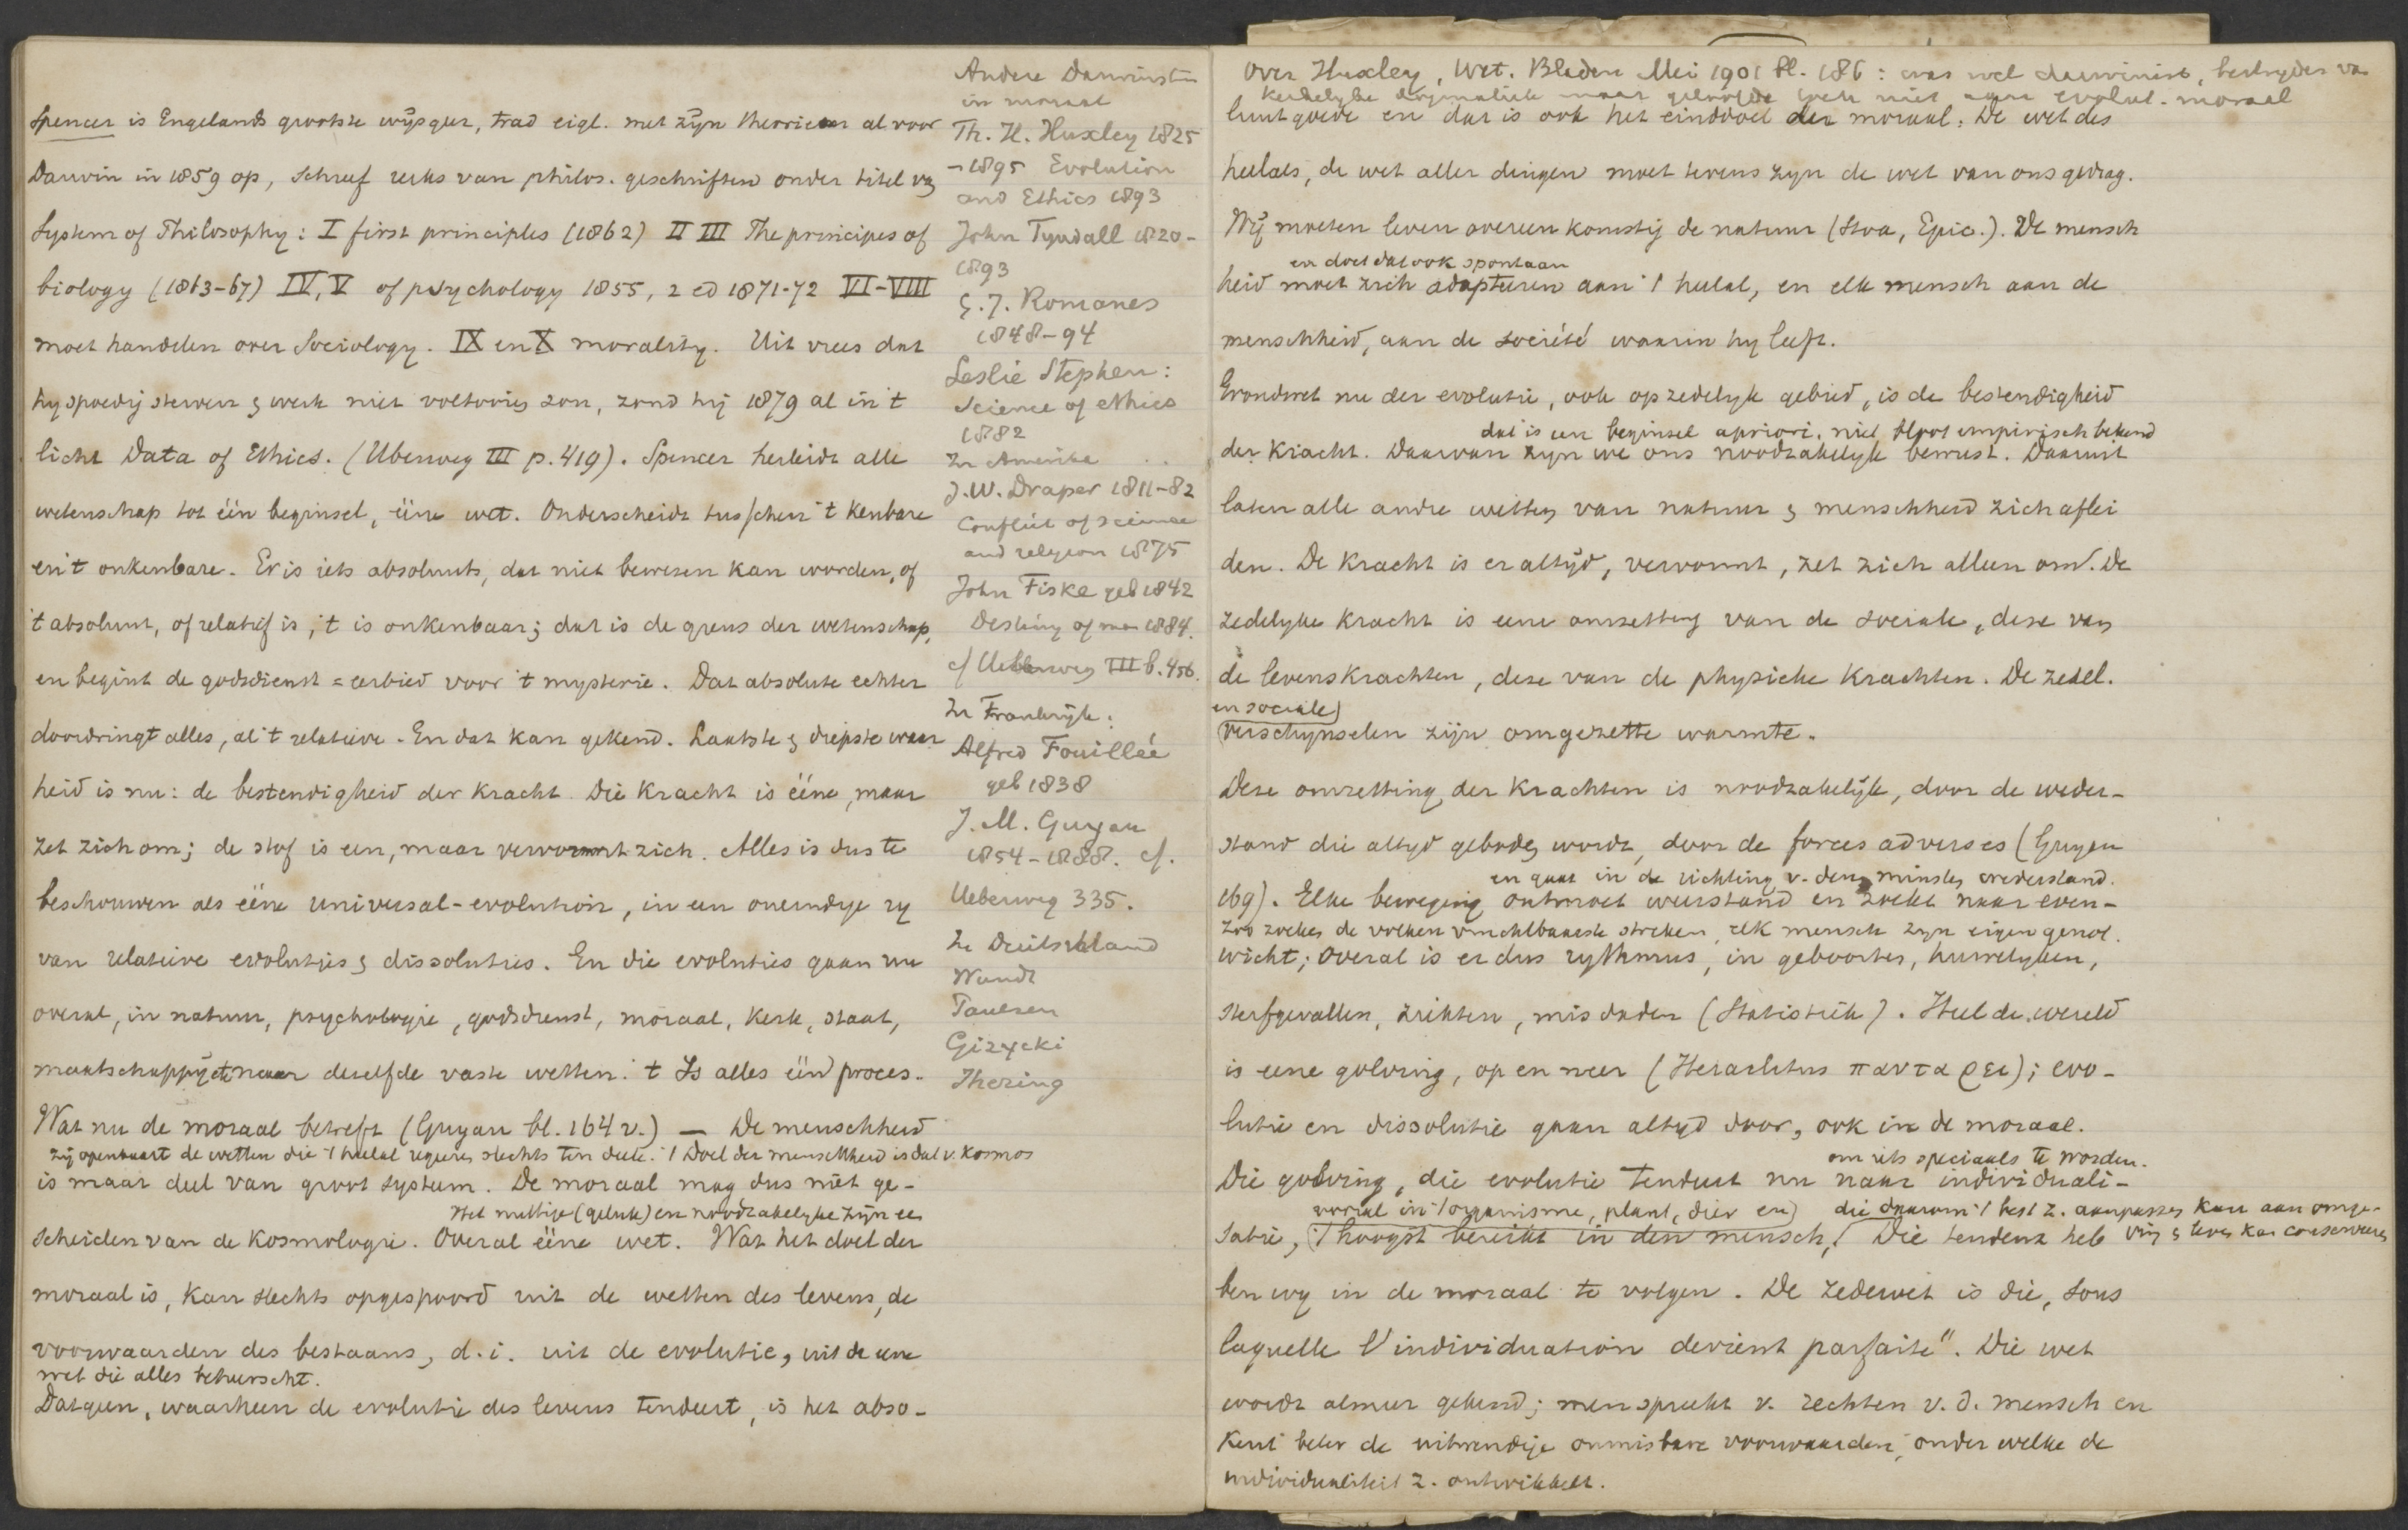 Spencer is Engelands grootste wijsgeer, trad eigl. met zijn theorieën al voor
Darwin in 1859 op, schreef reeks van philos. geschriften onder titel van
System of Philosophy: I first principles (1862) II III The principes of
biology (1863-67) IV, V of psychology 1855, 2 ed 1871-72 VI-VIII
moet handelen over Sociology. IX en X morality. Uit vrees dat
hy spoedig sterven & werk niet voltooien zou, zond hij 1879 al in 't
licht Data of Ethics. (Uberweg III p. 419). Spencer herleidt alle
wetenschap tot één beginsel, ééne wet. Onderscheidt tusschen 't kenbare
en 't onkenbare. Er is iets absoluuts, dat niet bewezen kan worden, of
't absoluut, of relatief is, 't is onkenbaar; dat is de grens der wetenschap,
en begint de godsdienst = eerbied voor 't mysterie. Dat absolute echter
doordringt alles, al 't relatieve. En dat kan gekend. Laatste & diepste waar
heid is nu: de bestendigheid der kracht. Die kracht is ééne, maar
zet zich om; de stof is een, maar vervormt zich. Alles is dus te
beschouwen als ééne universal-evolution, in een oneindige ry
van relatieve evoluties & dissoluties. En die evoluties gaan nu
overal, in natuur, psychologie, godsdienst, moraal, kerk, staat,
maatschappij etc naar dezelfde vaste wetten. 't Is alles één proces.
Wat nu de moraal betreft (Guyau bl. 164 v.) — De menschheid
zij openbaart de wetten die 't heelal regeeren slechts ten deele. 't Doel der menschheid is dat v. kosmos
is maar deel van groot systeem. De moraal mag dus niet ge-
Het nuttige (geluk) en noodzakelyke zijn een
scheiden van de kosmologie. Overal ééne wet. Wat het doel der
moraal is, kan slechts opgespoord uit de wetten des levens, de
voorwaarden des bestaans, d.i. uit de evolutie, uit de eene
wet die alles beheerscht.
Datgeen, waarheen de evolutie des levens tendeert, is het abso-
Andere Darwinisten
in moraal
Th. H. Huxley 1825
-1895 Evolution
and Ethics 1893
John Tyndall 1820-
1893
G. J. Romanes
1848-94
Leslie Stephen:
Science of ethics
1882
In Amerika
J. W. Draper 1811-82
Conflict of science
and religion 1875
John Fiske geb 1842
Destiny of man 1884.
cf Ueberweg III b. 456.
In Frankrijk:
Alfred Fouillée
geb 1838
J. M. Guyau
1854-1888. cf.
Ueberweg 335.
In Duitschland
Wundt
Paulsen
Gizycki
Ihering
Over Huxley, Wet. Bladen Mei 1901 bl. 186: was wel darwinist, bestryder van
kerkelyke dogmatiek maar geloofde toch niet aan evolut. moraal
luut goede en dat is ook het einddoel der moraal. De wet des
heelals, de wet aller dingen moet tevens zyn de wet van ons gedrag.
Wij moeten leven overeenkomstig de natuur (Stoa, Epic.). De mensch
en doet dat ook spontaan
heid moet zich adapteeren aan 't heelal, en elk mensch aan de
menschheid, aan de société waarin hy leeft.
Grondwet nu der evolutie, ook op zedelyk gebied, is de bestendigheid
dat is een beginsel apriori, niet bloot empirisch bekend
der kracht. Daarvan zyn we ons noodzakelyk bewust. Daaruit
laten alle andre wetten van natuur & menschheid zich aflei
den. De kracht is er altijd, vervormt, zet zich alleen om. De
zedelyke kracht is eene omzetting van de sociale, deze van
de levenskrachten, deze van de physische krachten. De zedel.
en sociale
verschynselen zijn omgezette warmte.
Deze omzetting der krachten is noodzakelijk, door de weder-
stand die altyd geboden wordt, door de forces adverses (Guyau
en gaat in de richting v. den minsten wederstand.
169). Elke beweging ontmoet weerstand en zoekt naar even-
Zoo zoeken de volken vruchtbaarste streken, elk mensch zyn eigen genot.
wicht; overal is er dus rythmus, in geboortes, huwelyken,
sterfgevallen, ziekten, misdaden (Statistiek). Heel de wereld
is eene golving, op en neer (Heraclitus παντα ρει); evo-
lutie en dissolutie gaan altyd door, ook in de moraal.
om iets speciaals te worden.
Die golving, die evolutie tendeert nu naar individuali-
vooral in 't organisme, plant, dier en die daarom 't best z. aanpassen kan aan omge-
satie, 't hoogst bereikt in den mensch, Die tendenz heb ving & leven kan conserveeren
ben wy in de moraal te volgen. De zedewet is die, sous
laquelle l'individuation devient parfaite". Die wet
wordt almeer gekend; men spreekt v. rechten v. d. mensch en
kent beter de uitwendige onmisbare voorwaarden, onder welke de
individualiteit z. ontwikkelt.